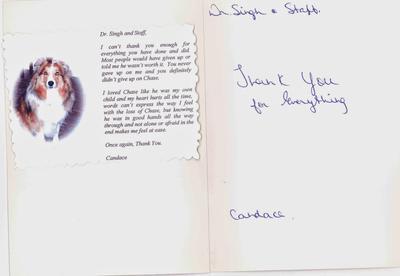 Dr. Singh and Staff,
I can't thank you enough for
everything you have done and did.
Most people would have given up or
told me he wasn't worth it. You never
gave up on me and you definitely
didn't give up on Chase.
I loved Chase like he was my own
child and my heart hurts all the time,
words can't express the way I feel
with the loss of Chase, but knowing
he was in good hands all the way
through and not alone or afraid in the
end makes me feel at ease.
Once again, Thank You.
Candace
Dr. Singh & Staff.
Thank You
for everything
Candace.